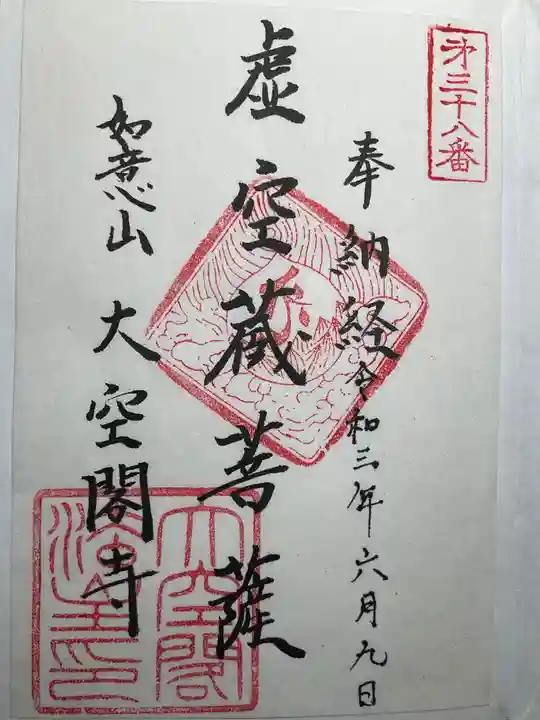 第三十八番
奉納経令和三年六月九日
虚空蔵菩薩
如意山大空閣寺
大空閣